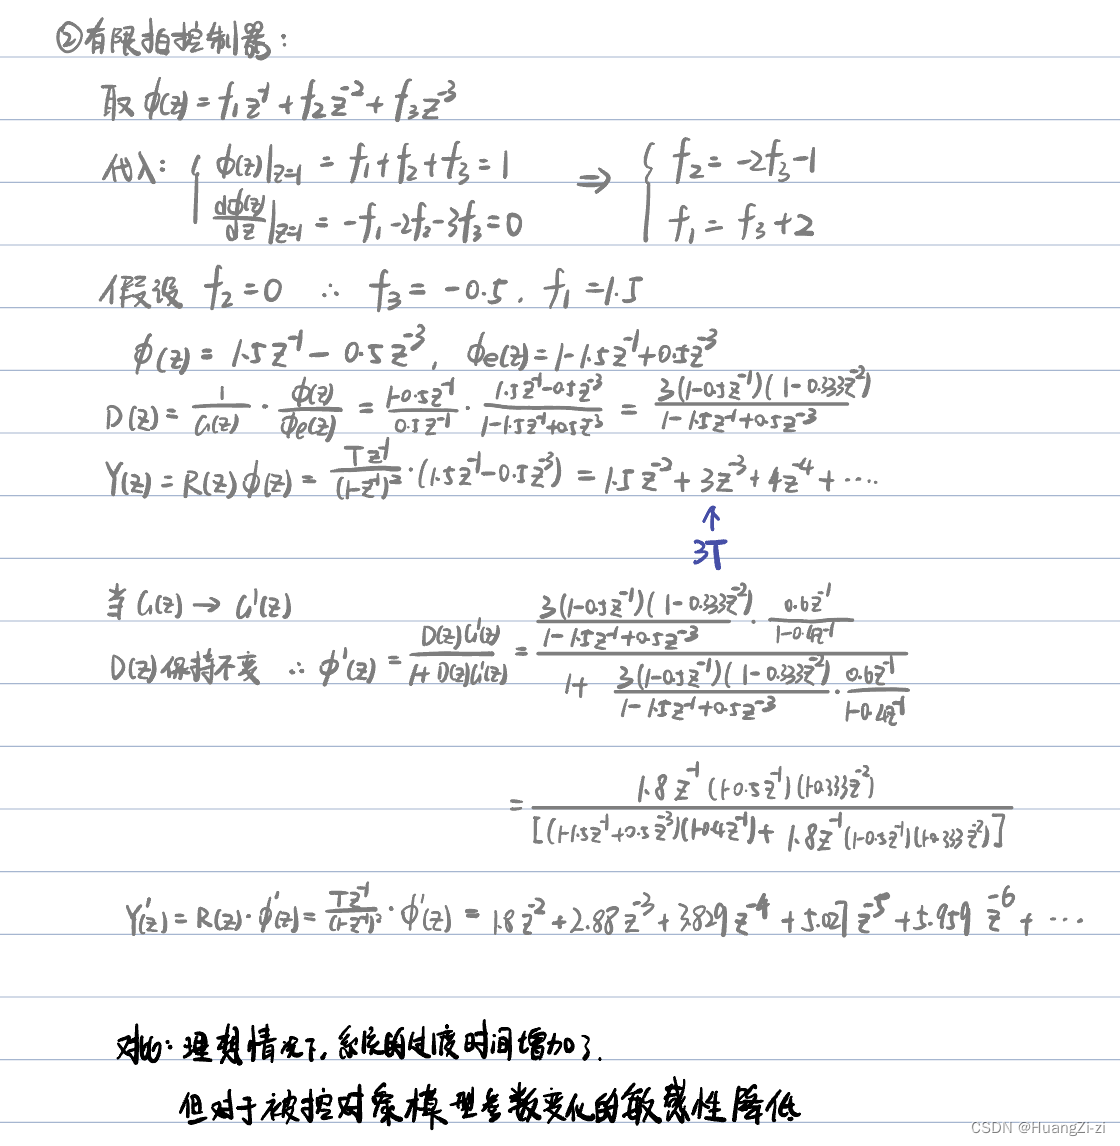 ②有限拍控制器:
取 ϕ(z) = f₁z⁻¹ + f₂z⁻² + f₃z⁻³
代入: { ϕ(z)|z=1 = f₁+f₂+f₃ = 1 ⇒ { f₂ = -2f₃-1
dϕ(z)/dz|z=1 = -f₁-2f₂-3f₃=0 f₁ = f₃+2
假设 f₂=0 ∴ f₃ = -0.5, f₁=1.5
ϕ(z) = 1.5z⁻¹ - 0.5z⁻³, ϕe(z)=1-1.5z⁻¹+0.5z⁻³
D(z) = 1/G(z) · ϕ(z)/ϕe(z) = (1-0.5z⁻¹)/(0.5z⁻¹) · (1.5z⁻¹-0.5z⁻³)/(1-1.5z⁻¹+0.5z⁻³) = 3(1-0.5z⁻¹)(1-0.333z⁻²)/(1-1.5z⁻¹+0.5z⁻³)
Y(z) = R(z)ϕ(z) = Tz⁻¹/(1-z⁻¹)² · (1.5z⁻¹-0.5z⁻³) = 1.5z⁻² + 3z⁻³ + 4z⁻⁴ + ····
↑
3T
当 G(z) → G'(z)
D(z)保持不变 ∴ ϕ'(z) = D(z)G'(z)/(1+D(z)G'(z)) = [3(1-0.5z⁻¹)(1-0.333z⁻²)/(1-1.5z⁻¹+0.5z⁻³) · 0.6z⁻¹/(1-0.4z⁻¹)] / [1+ 3(1-0.5z⁻¹)(1-0.333z⁻²)/(1-1.5z⁻¹+0.5z⁻³) · 0.6z⁻¹/(1-0.4z⁻¹)]
= 1.8z⁻¹(1-0.5z⁻¹)(1-0.333z⁻²) / [(1-1.5z⁻¹+0.5z⁻³)(1-0.4z⁻¹)+1.8z⁻¹(1-0.5z⁻¹)(1-0.333z⁻²)]
Y'(z) = R(z)·ϕ'(z) = Tz⁻¹/(1-z⁻¹)² · ϕ'(z) = 1.8z⁻²+2.88z⁻³+3.829z⁻⁴+5.027z⁻⁵+5.959z⁻⁶+ ···
对比: 理想情况下, 系统的过渡时间增加了.
但对于被控对象模型参数变化的敏感性降低
CSDN @HuangZi-zi